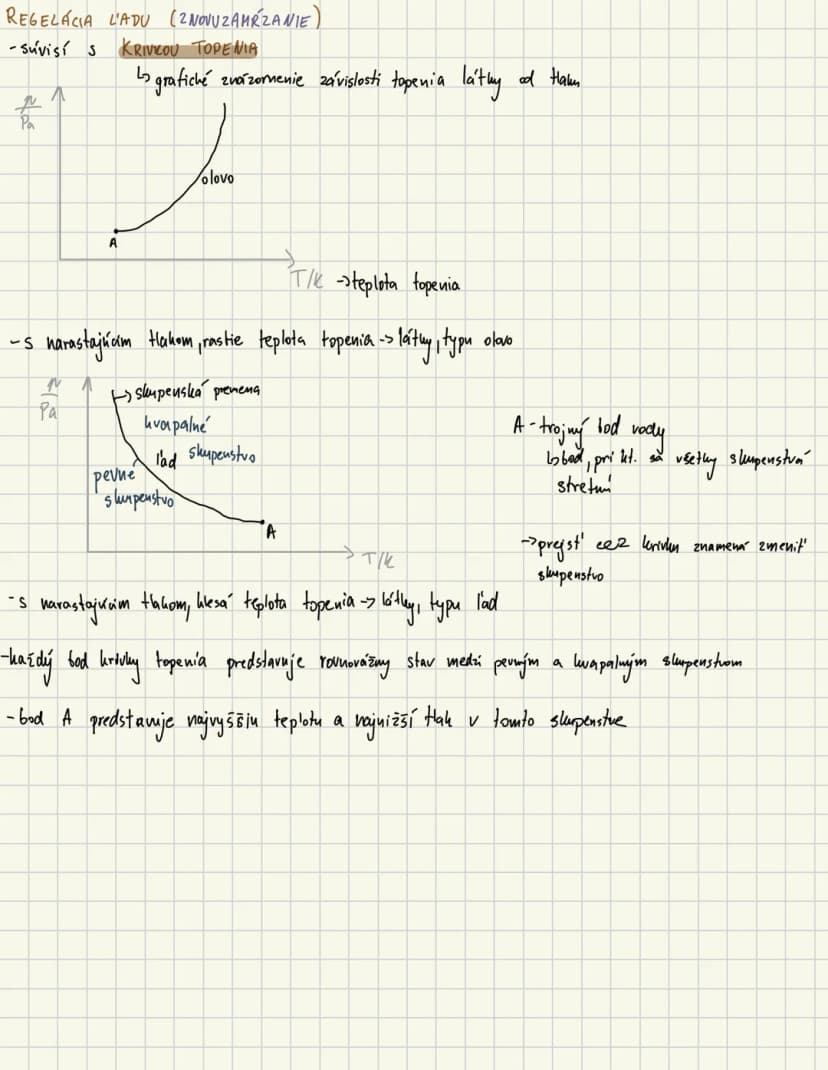 REGELÁCIA ĽADU (ZNOVUZAMŔZANIE)
- súvisí s KRIVKOU TOPENIA
↳ grafické znázornenie závislosti topenia látky od tlaku
p/Pa
olovo
A
T/K → teplota topenia
- s narastajúcim tlakom, rastie teplota topenia -> látky, typu olovo
p/Pa
↳ skupenská premena
kvapalné
skupenstvo
ľad
pevné
skupenstvo
A
T/K
A - trojný bod vody
↳ bod, pri kt. sa všetky skupenstvá
stretnú
-> prejsť cez krivku znamená zmeniť
skupenstvo
- s narastajúcim tlakom, klesá teplota topenia -> látky, typu ľad
- každý bod krivky topenia predstavuje rovnovážny stav medzi pevným a kvapalným skupenstvom
- bod A predstavuje najvyššiu teplotu a najnižší tlak v tomto skupenstve